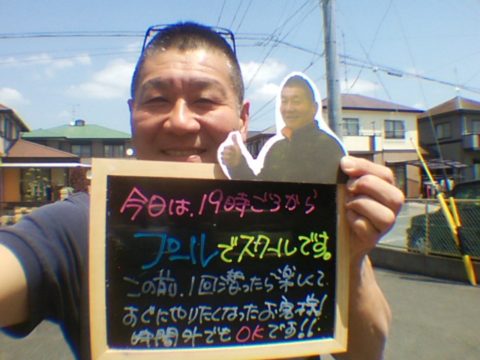 今日は、19時ごろから
プールでスクールです。
この前、1回潜ったら楽しくて
すぐにやりたくなったお客様!
時間外でもOKです!!